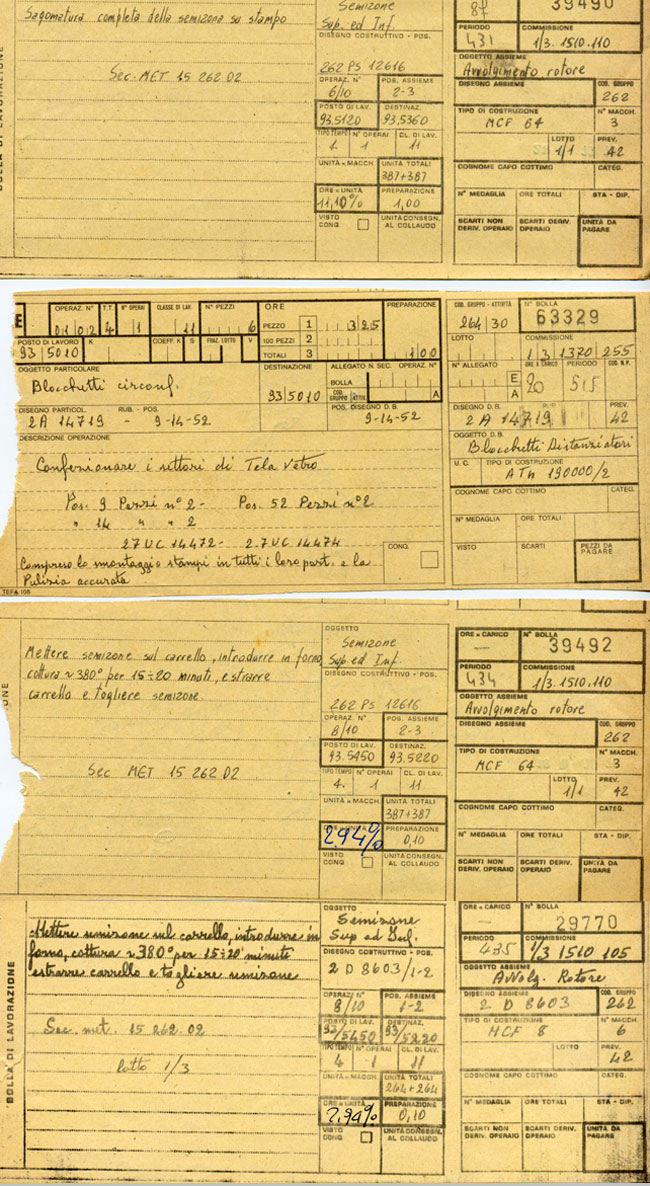 Sagomatura completa della semizona su stampo
Sec. MET 15 262 02
BOLLA DI LAVORAZIONE
Semizone
Sup. ed Inf.
DISEGNO COSTRUTTIVO - POS.
262 PS 12616
OPERAZ. N° POS. ASSIEME
6/10 2-3
POSTO DI LAV. DESTINAZ.
93.5120 93.5360
TIPO TEMPO N° OPERAI CL. DI LAV.
1 1 11
UNITÀ × MACCH. UNITÀ TOTALI
387+387
ORE × UNITÀ PREPARAZIONE
11,10% 1,00
VISTO CONQ UNITÀ CONSEGN. AL COLLAUDO
39490
PERIODO COMMISSIONE
431 1/3.1510.110
OGGETTO ASSIEME
Avvolgimento rotore
DISEGNO ASSIEME COD. GRUPPO
262
TIPO DI COSTRUZIONE N° MACCH.
MCF 64 3
LOTTO PREV.
1/1 42
COGNOME CAPO COTTIMO CATEG.
N° MEDAGLIA ORE TOTALI STA - DIP.
SCARTI NON DERIV. OPERAIO SCARTI DERIV. OPERAIO UNITÀ DA PAGARE
E
OPERAZ. N° T.T. N° OPERAI CLASSE DI LAV. N° PEZZI ORE PREPARAZIONE
01 02 4 1 11 6 PEZZO 1 325
100 PEZZI 2
TOTALI 3 100
POSTO DI LAVORO K COEFF. K S FRAZ. LOTTO V
93 5010
OGGETTO PARTICOLARE DESTINAZIONE ALLEGATO N. SERIE OPERAZ. N°
Blocchetti circonf. 93 5010 BOLLA
COD. GRUPPO ATTIV. A
DISEGNO PARTICOL. RUB. - POS. POS. DISEGNO D.B.
2A 14719 - 9-14-52 9-14-52
DESCRIZIONE OPERAZIONE
Confezionare i settori di Tela Vetro
Pos. 9 Pezzi n° 2 - Pos. 52 Pezzi n° 2
" 14 " " 2
27UC 14472 - 27UC 14474
Compreso lo smontaggio stampi in tutti i loro part. e la
Pulizia accurata
CONQ.
TEFA 105
COD. GRUPPO - ATTIVITÀ N° BOLLA
264 30 63329
LOTTO COMMISSIONE
1 3 1370 255
N° ALLEGATO ORE A CARICO PERIODO
E A 20 515
DISEGNO D.B. PREV.
2A 14719 42
OGGETTO D.B.
Blocchetti Distanziatori
U.C. TIPO DI COSTRUZIONE
ATn 190000/2
COGNOME CAPO COTTIMO CATEG.
N° MEDAGLIA ORE TOTALI
VISTO SCARTI PEZZI DA PAGARE
Mettere semizone sul carrello, introdurre in forno,
cottura ~ 380° per 15÷20 minuti, estrarre
carrello e togliere semizone.
Sec MET 15 262 02
OGGETTO
Semizone
Sup ed Inf
DISEGNO COSTRUTTIVO - POS.
262 PS 12616
OPERAZ. N° POS. ASSIEME
8/10 2-3
POSTO DI LAV. DESTINAZ.
93.5450 93.5220
TIPO TEMPO N° OPERAI CL. DI LAV.
4. 1 11
UNITÀ × MACCH. UNITÀ TOTALI
387+387
2,94% PREPARAZIONE
0,10
VISTO CONQ UNITÀ CONSEGN. AL COLLAUDO
ORE × CARICO N° BOLLA
— 39492
PERIODO COMMISSIONE
434 1/3.1510.110
OGGETTO ASSIEME
Avvolgimento rotore
DISEGNO ASSIEME COD. GRUPPO
262
TIPO DI COSTRUZIONE N° MACCH.
MCF 64 3
LOTTO PREV.
1/1 42
COGNOME CAPO COTTIMO CATEG.
N° MEDAGLIA ORE TOTALI STA - DIP.
SCARTI NON DERIV. OPERAIO SCARTI DERIV. OPERAIO UNITÀ DA PAGARE
BOLLA DI LAVORAZIONE
Mettere semizone sul carrello, introdurre in
forno, cottura ~ 380° per 15÷20 minuti
estrarre carrello e togliere semizone
Sec. met. 15 262.02
lotto 1/3
OGGETTO
Semizone
Sup ed Inf.
DISEGNO COSTRUTTIVO - POS.
2 D 8603/1-2
OPERAZ. N° POS. ASSIEME
8/10 1-2
POSTO DI LAV. DESTINAZ.
93/5450 93/5220
TIPO TEMPO N° OPERAI CL. DI LAV.
4 1 11
UNITÀ × MACCH. UNITÀ TOTALI
264+264
ORE × UNITÀ PREPARAZIONE
2,94% 0,10
VISTO CONQ UNITÀ CONSEGN. AL COLLAUDO
ORE × CARICO N° BOLLA
— 29770
PERIODO COMMISSIONE
435 1/3 1510 105
OGGETTO ASSIEME
Avvolg. Rotore
DISEGNO ASSIEME COD. GRUPPO
2 D 8603 262
TIPO DI COSTRUZIONE N° MACCH.
MCF 8 6
LOTTO PREV.
42
COGNOME CAPO COTTIMO CATEG.
N° MEDAGLIA ORE TOTALI STA - DIP.
SCARTI NON DERIV. OPERAIO SCARTI DERIV. OPERAIO UNITÀ DA PAGARE